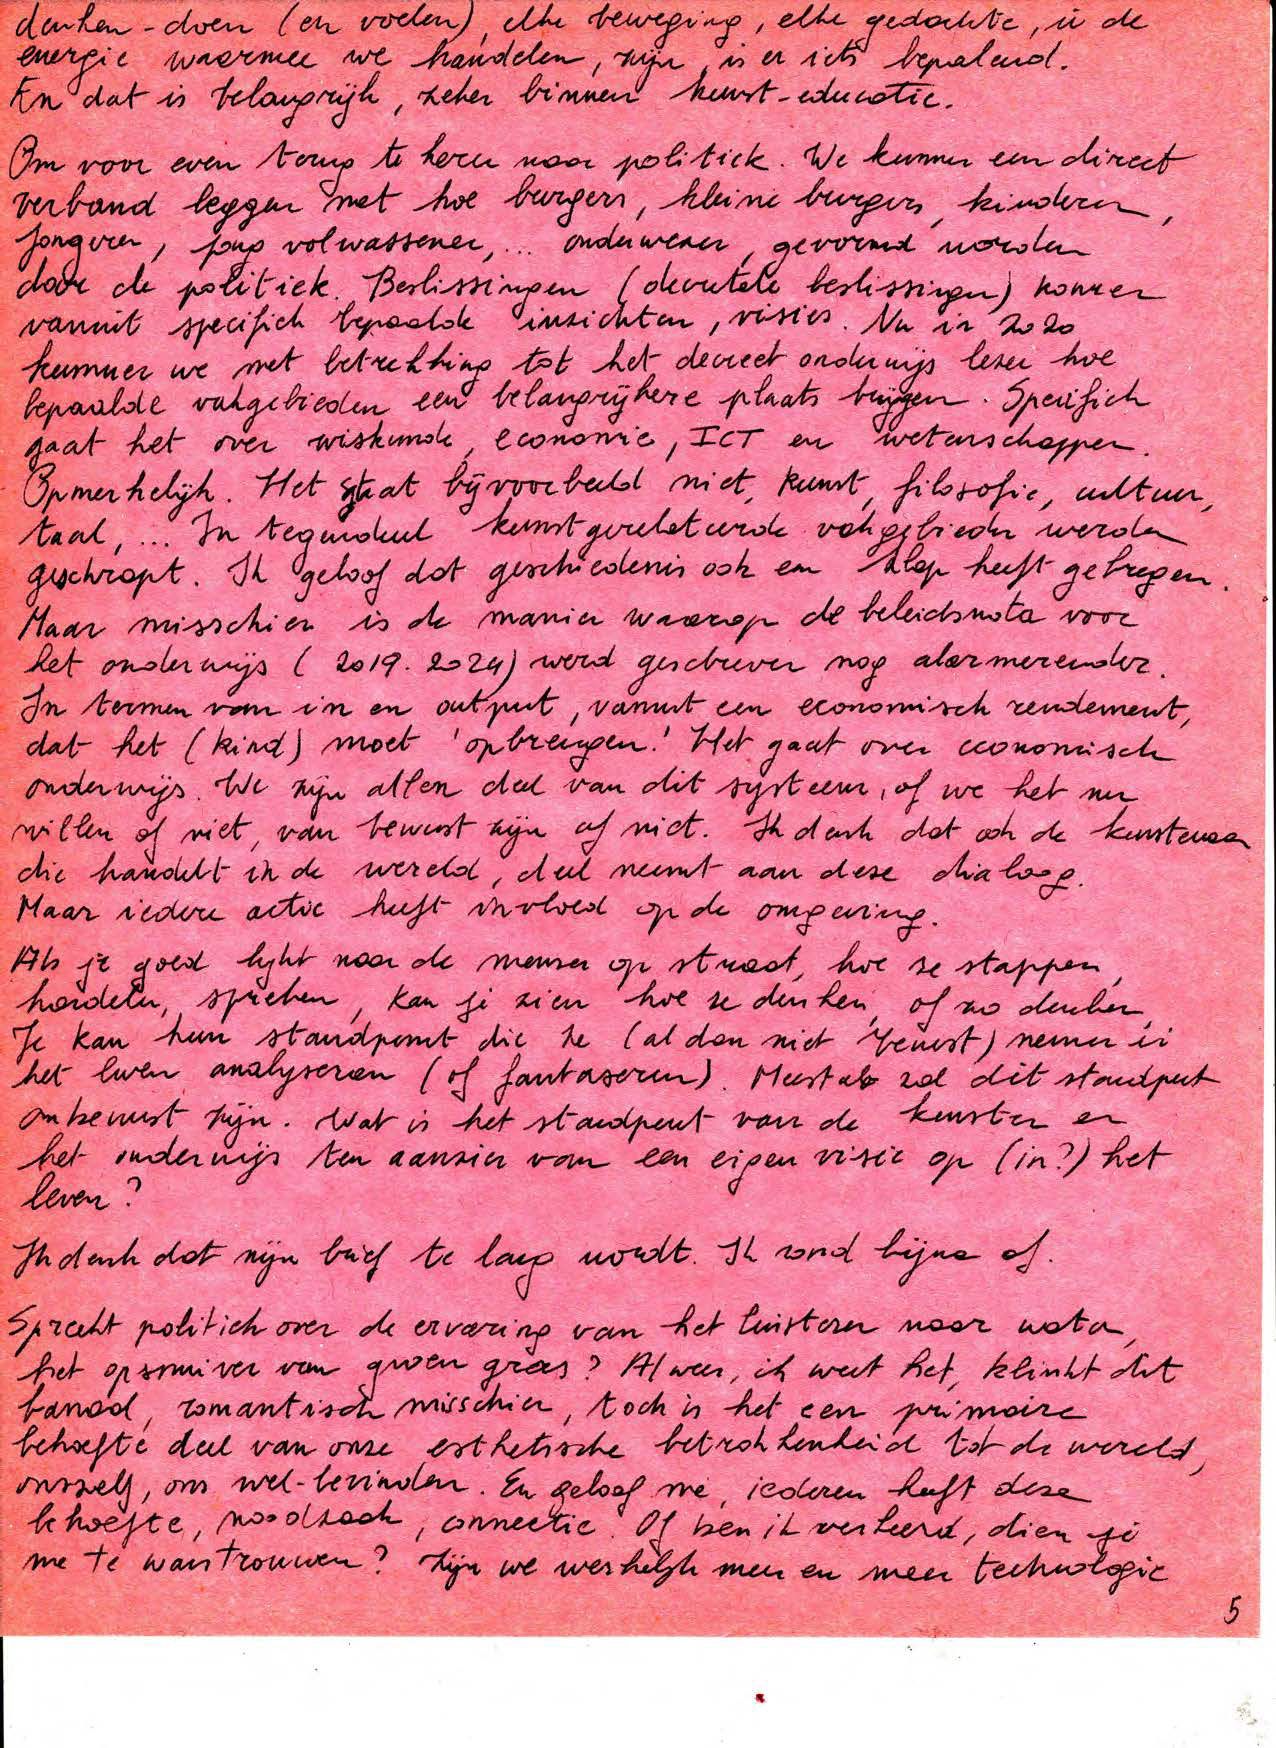 denken-doen (en voelen), elke beweging, elke gedachte, in de
energie waarmee we handelen, zijn, is er iets bepalend.
En dat is belangrijk, zeker binnen kunst-educatie.
Om voor even terug te keren naar politiek. We kunnen een direct
verband leggen met hoe burgers, kleine burgers, kinderen,
jongeren, jong volwassenen, ... onderwezen, gevormd worden
door de politiek. Beslissingen (decretale beslissingen) komen
vanuit specifiek bepaalde inzichten, visies. Nu in 2020
kunnen we met betrekking tot het decreet onderwijs lezen hoe
bepaalde vakgebieden een belangrijkere plaats krijgen. Specifiek
gaat het over wiskunde, economie, ICT en wetenschappen.
Opmerkelijk. Het gaat bijvoorbeeld niet, kunst, filosofie, cultuur,
taal, ... In tegendeel kunstgerelateerde vakgebieden werden
geschrapt. Ik geloof dat geschiedenis ook een klap heeft gekregen.
Maar misschien is de manier waarop de beleidsnota voor
het onderwijs (2019-2024) werd geschreven nog alarmerender.
In termen van in en output, vanuit een economisch rendement,
dat het (kind) moet 'opbrengen.' Het gaat over economisch
onderwijs. We zijn allen deel van dit systeem, of we het nu
willen of niet, van bewust zijn of niet. Ik denk dat ook de kunstenaar
die handelt in de wereld, deel neemt aan deze dialoog.
Maar iedere actie heeft invloed op de omgeving.
Als je goed kijkt naar de mensen op straat, hoe ze stappen,
handelen, spreken, kan je zien hoe ze denken, of zo denken,
Je kan hun standpunt die ze (al dan niet bewust) nemen in
het leven analyseren (of fantaseren). Meestal zal dit standpunt
onbewust zijn. Wat is het standpunt van de kunsten en
het onderwijs ten aanzien van een eigen visie op (in?) het
leven?
Ik denk dat mijn brief te lang wordt. Ik rond bijna af.
Spreekt politiek over de ervaring van het luisteren naar water,
het opsnuiven van groen gras? Alweer, ik weet het, klinkt dit
banaal, romantisch misschien, toch is het een primaire
behoefte deel van onze esthetische betrokkenheid tot de wereld,
onszelf, ons wel-bevinden. En geloof me, iedereen heeft deze
behoefte, noodzaak, connectie. Of ben ik verkeerd, dien je
me te wantrouwen? Zijn we werkelijk meer en meer technologie
5